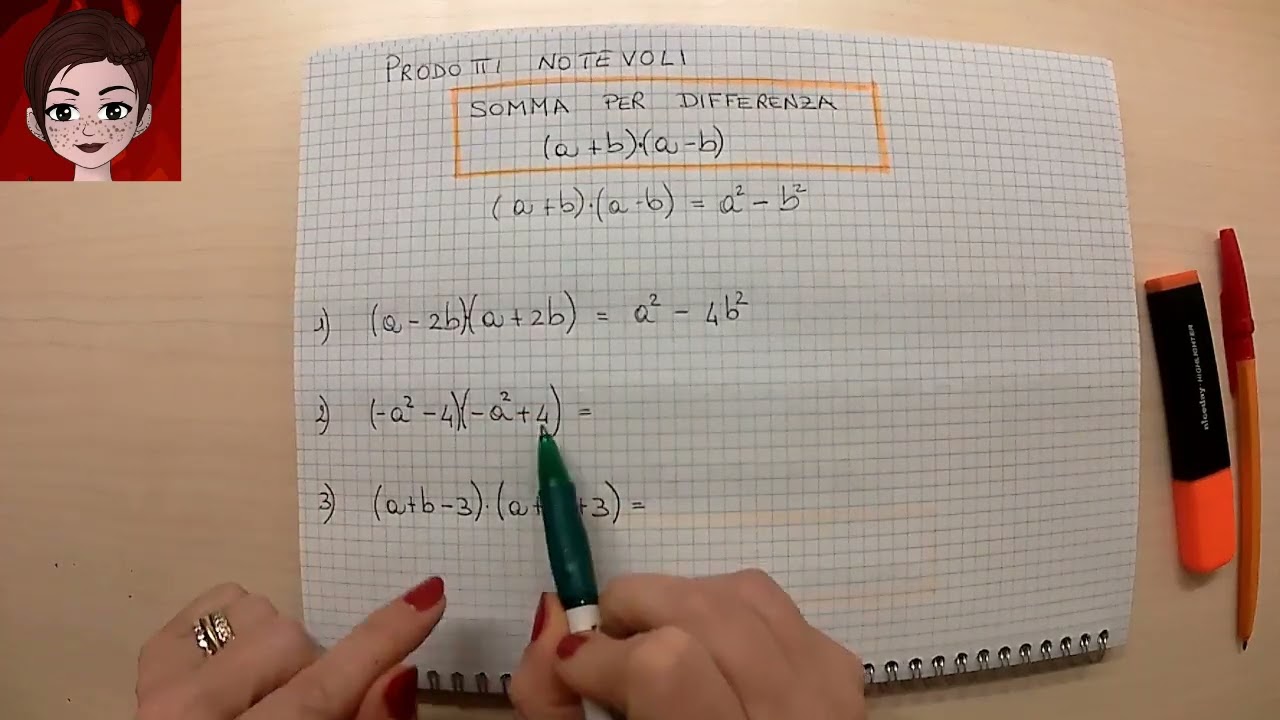 PRODOTTI NOTEVOLI
SOMMA PER DIFFERENZA
(a+b)·(a-b)
(a+b)·(a-b) = a² - b²
1) (a-2b)(a+2b) = a² - 4b²
2) (-a²-4)(-a²+4) =
3) (a+b-3)·(a+ +3) =
niceday HIGHLIGHTER